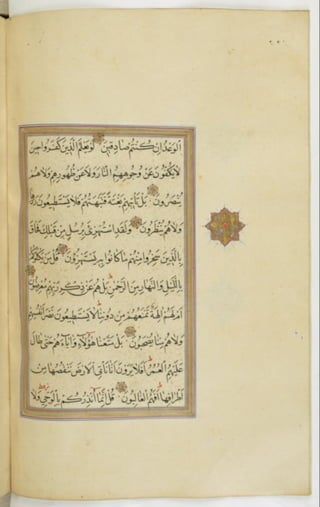 الْوَعْدُ اِنْ كُنْتُمْ صَادِقِينَ لَوْ يَعْلَمُ الَّذِينَ كَفَرُوا حِينَ
لَا يَكُفُّونَ عَنْ وُجُوهِهِمُ النَّارَ وَلَا عَنْ ظُهُورِهِمْ وَلَا هُمْ
يُنْصَرُونَ بَلْ تَأْتِيهِمْ بَغْتَةً فَتَبْهَتُهُمْ فَلَا يَسْتَطِيعُونَ رَدَّهَا
وَلَا هُمْ يُنْظَرُونَ وَلَقَدِ اسْتُهْزِئَ بِرُسُلٍ مِنْ قَبْلِكَ فَحَاقَ
بِالَّذِينَ سَخِرُوا مِنْهُمْ مَا كَانُوا بِهِ يَسْتَهْزِؤُنَ قُلْ مَنْ يَكْلَؤُكُمْ
بِالَّيْلِ وَالنَّهَارِ مِنَ الرَّحْمٰنِ بَلْ هُمْ عَنْ ذِكْرِ رَبِّهِمْ مُعْرِضُونَ
اَمْ لَهُمْ اٰلِهَةٌ تَمْنَعُهُمْ مِنْ دُونِنَا لَا يَسْتَطِيعُونَ نَصْرَ اَنْفُسِهِمْ
وَلَا هُمْ مِنَّا يُصْحَبُونَ بَلْ مَتَّعْنَا هٰؤُلَاءِ وَاٰبَاءَهُمْ حَتّٰى طَالَ
عَلَيْهِمُ الْعُمُرُ اَفَلَا يَرَوْنَ اَنَّا نَأْتِي الْاَرْضَ نَنْقُصُهَا مِنْ
اَطْرَافِهَا اَفَهُمُ الْغَالِبُونَ قُلْ اِنَّمَا اُنْذِرُكُمْ بِالْوَحْيِ وَلَا